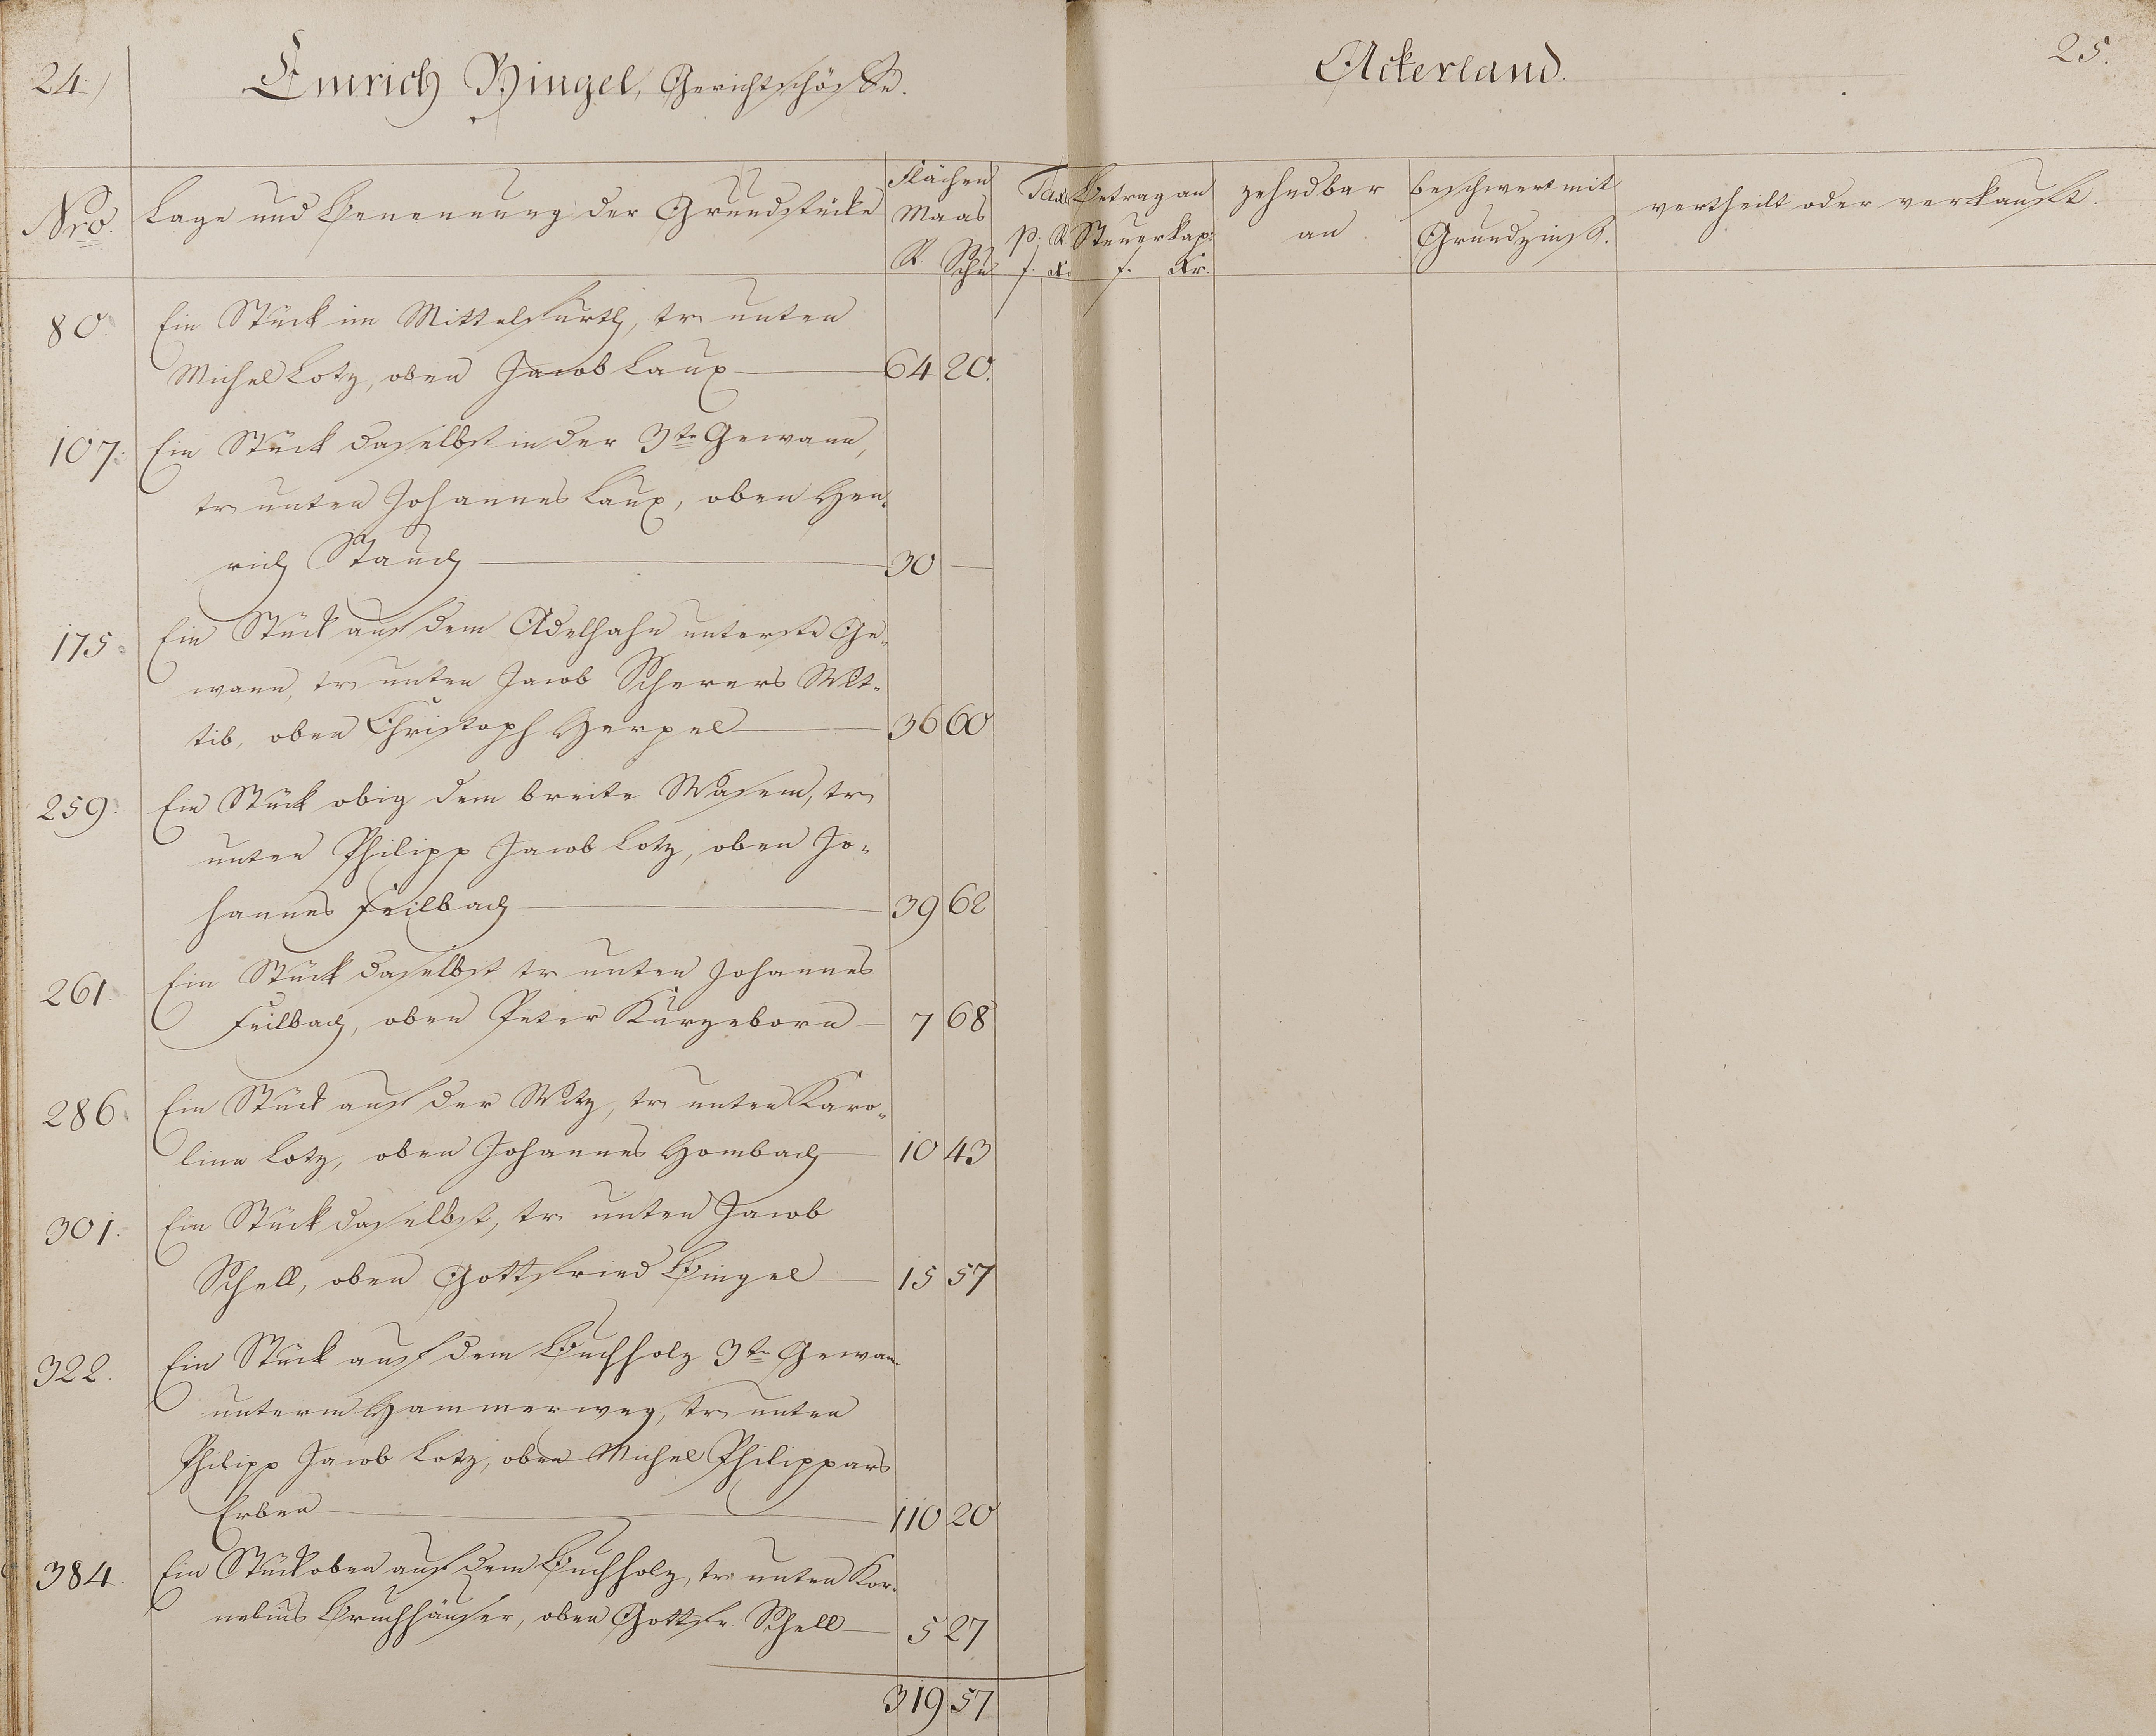 24.)
Emrich Bingel, Gerichtschöffe.
Ackerland.
25.
Nro. Lage und Benennung der Grundstücke Flächen Maas R. Schu Tax p. R. f. x. Betrag an Steuerkap: f. Kr. zehndbar an beschwert mit Grundzinß. vertheilt oder verkauft.
80. Ein Stück im Mittelfurth, tr. unten
Michel Lotz, oben Jacob Laux 64 20.
107. Ein Stück daselbst in der 3te Gewann,
tr. unten Johannes Laux, oben Hen-
rich Stauch 30 —
175. Ein Stück auf dem Adelhahn unterste Ge-
wann, tr. unten Jacob Scherers Wit-
tib, oben Christoph Herpel 36 60
259. Ein Stück obig dem breite Wasem, tr.
unten Philipp Jacob Lotz, oben Jo-
hannes Feilbach 39 62
261. Ein Stück daselbst tr. unten Johannes
Feilbach, oben Peter Kurzeborn 7 68
286. Ein Stück auf der Witz, tr. unten Karo-
line Lotz, oben Johannes Hombach 10 43
301. Ein Stück daselbst, tr. unten Jacob
Schell, oben Gottfried Bingel 15 57
322. Ein Stück auf dem Buchholz 3te Gewan
unterm Hammerweg, tr. unten
Philipp Jacob Lotz, oben Michel Philippars
Erben 110 20
384. Ein Stück oben auf dem Buchholz, tr. unten Kor-
nelius Bruchhäuser, oben Gottfr. Schell 5 27
319 57